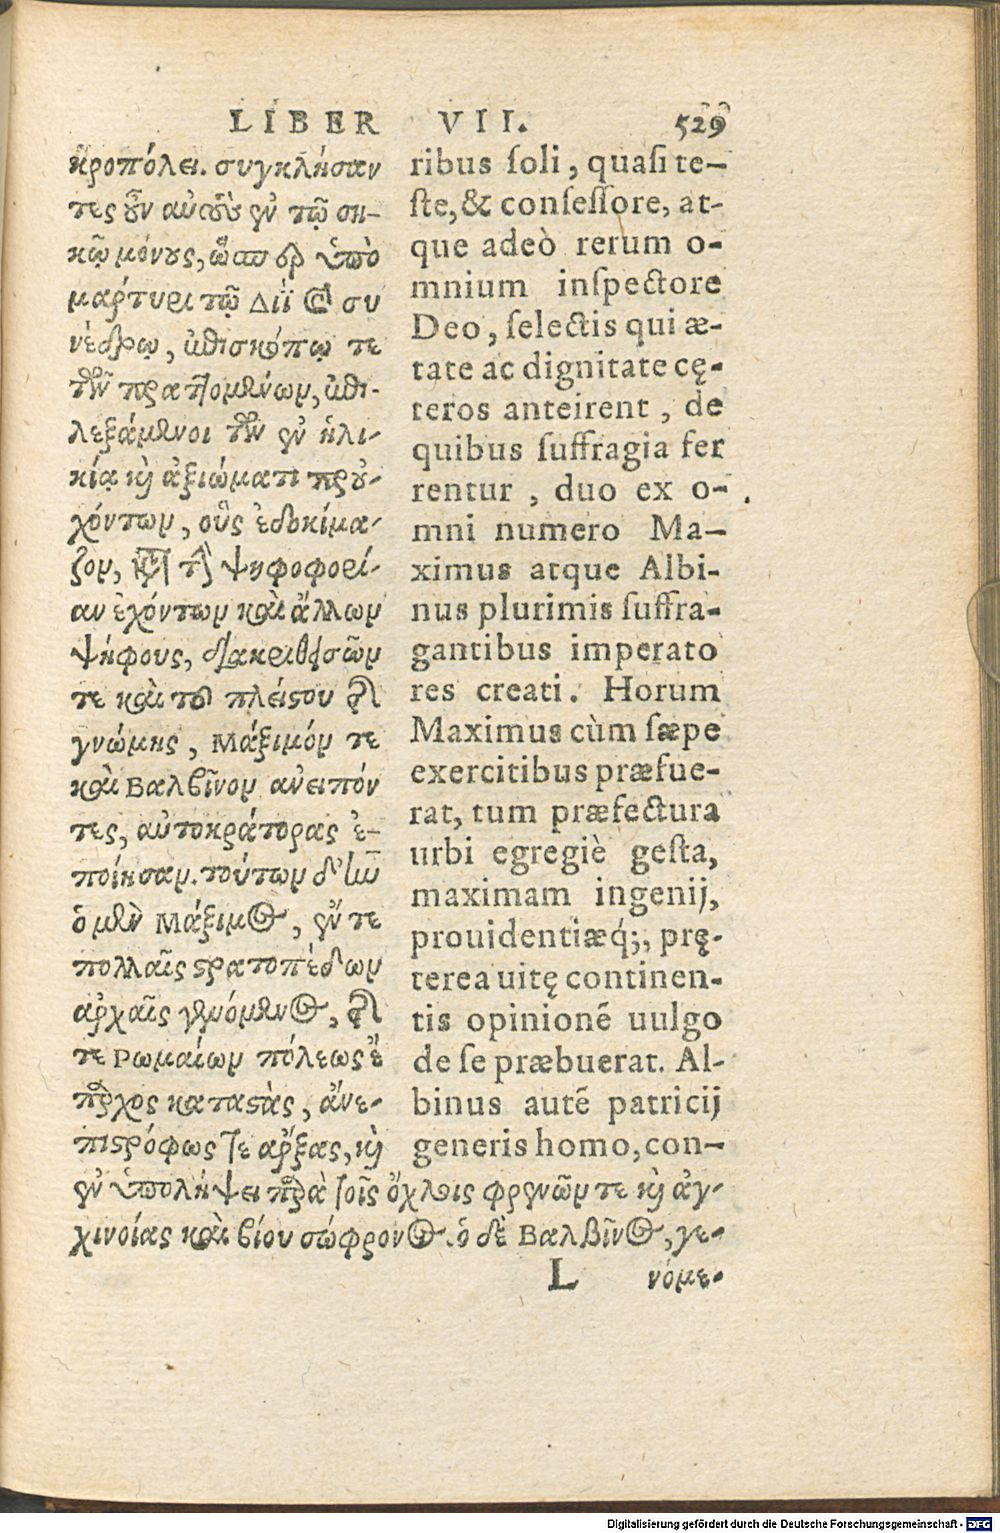 LIBER VII. 529
κροπόλει. συγκλείσαν
τες οὖν αὑτοὺς ἐν τῷ ση-
κῷ μόνους, ὥσπερ ὑπὸ
μάρτυρι τῷ Διῒ καὶ συ
νέδρῳ, ἐπισκόπῳ τε
τῶν πραττομένων, ἐπι-
λεξάμενοι τῶν ἐν ἡλι-
κίᾳ καὶ ἀξιώματι προὐ-
χόντων, οὓς ἐδοκίμα-
ζον, καὶ τὴν ψηφοφορί-
αν ἐχόντων καὶ ἄλλων
ψήφους, διακριθεισῶν
τε καὶ τοῦ πλείστου τῆς
γνώμης, Μάξιμόν τε
καὶ Βαλβῖνον ἀνειπόν
τες, αὐτοκράτορας ἐ-
ποίησαν. τούτων δ' ἦν
ὁ μὲν Μάξιμος, ἔν τε
πολλαῖς στρατοπέδων
ἀρχαῖς γενόμενος, τῆς
τε Ρωμαίων πόλεως ἔ
παρχος καταστὰς, ἀνε-
πιστρόφως τε ἄρξας, καὶ
ἐν ὑπολήψει παρὰ τοῖς ὄχλοις φρενῶν τε καὶ ἀγ-
χινοίας καὶ βίου σώφρονος. ὁ δὲ Βαλβῖνος, γε-
ribus soli, quasi te-
ste, & consessore, at-
que adeò rerum o-
mnium inspectore
Deo, selectis qui æ-
tate ac dignitate cę-
teros anteirent, de
quibus suffragia fer
rentur, duo ex o-
mni numero Ma-
ximus atque Albi-
nus plurimis suffra-
gantibus imperato
res creati. Horum
Maximus cùm sæpe
exercitibus præfue-
rat, tum præfectura
urbi egregiè gesta,
maximam ingenij,
prouidentiæq́;, prę-
terea uitę continen-
tis opinionē uulgo
de se præbuerat. Al-
binus autē patricij
generis homo, con-
L νόμε-
Digitalisierung gefördert durch die Deutsche Forschungsgemeinschaft - DFG